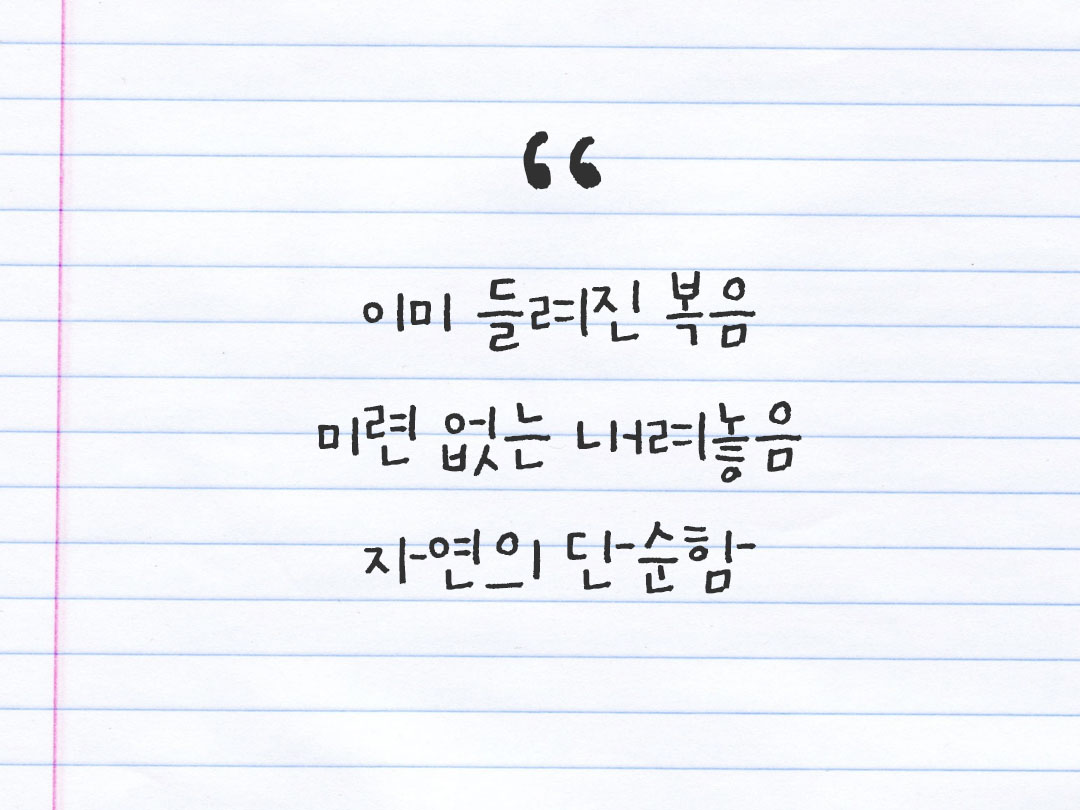 “
이미 들려진 복음
미련 없는 내려놓음
자연의 단순함